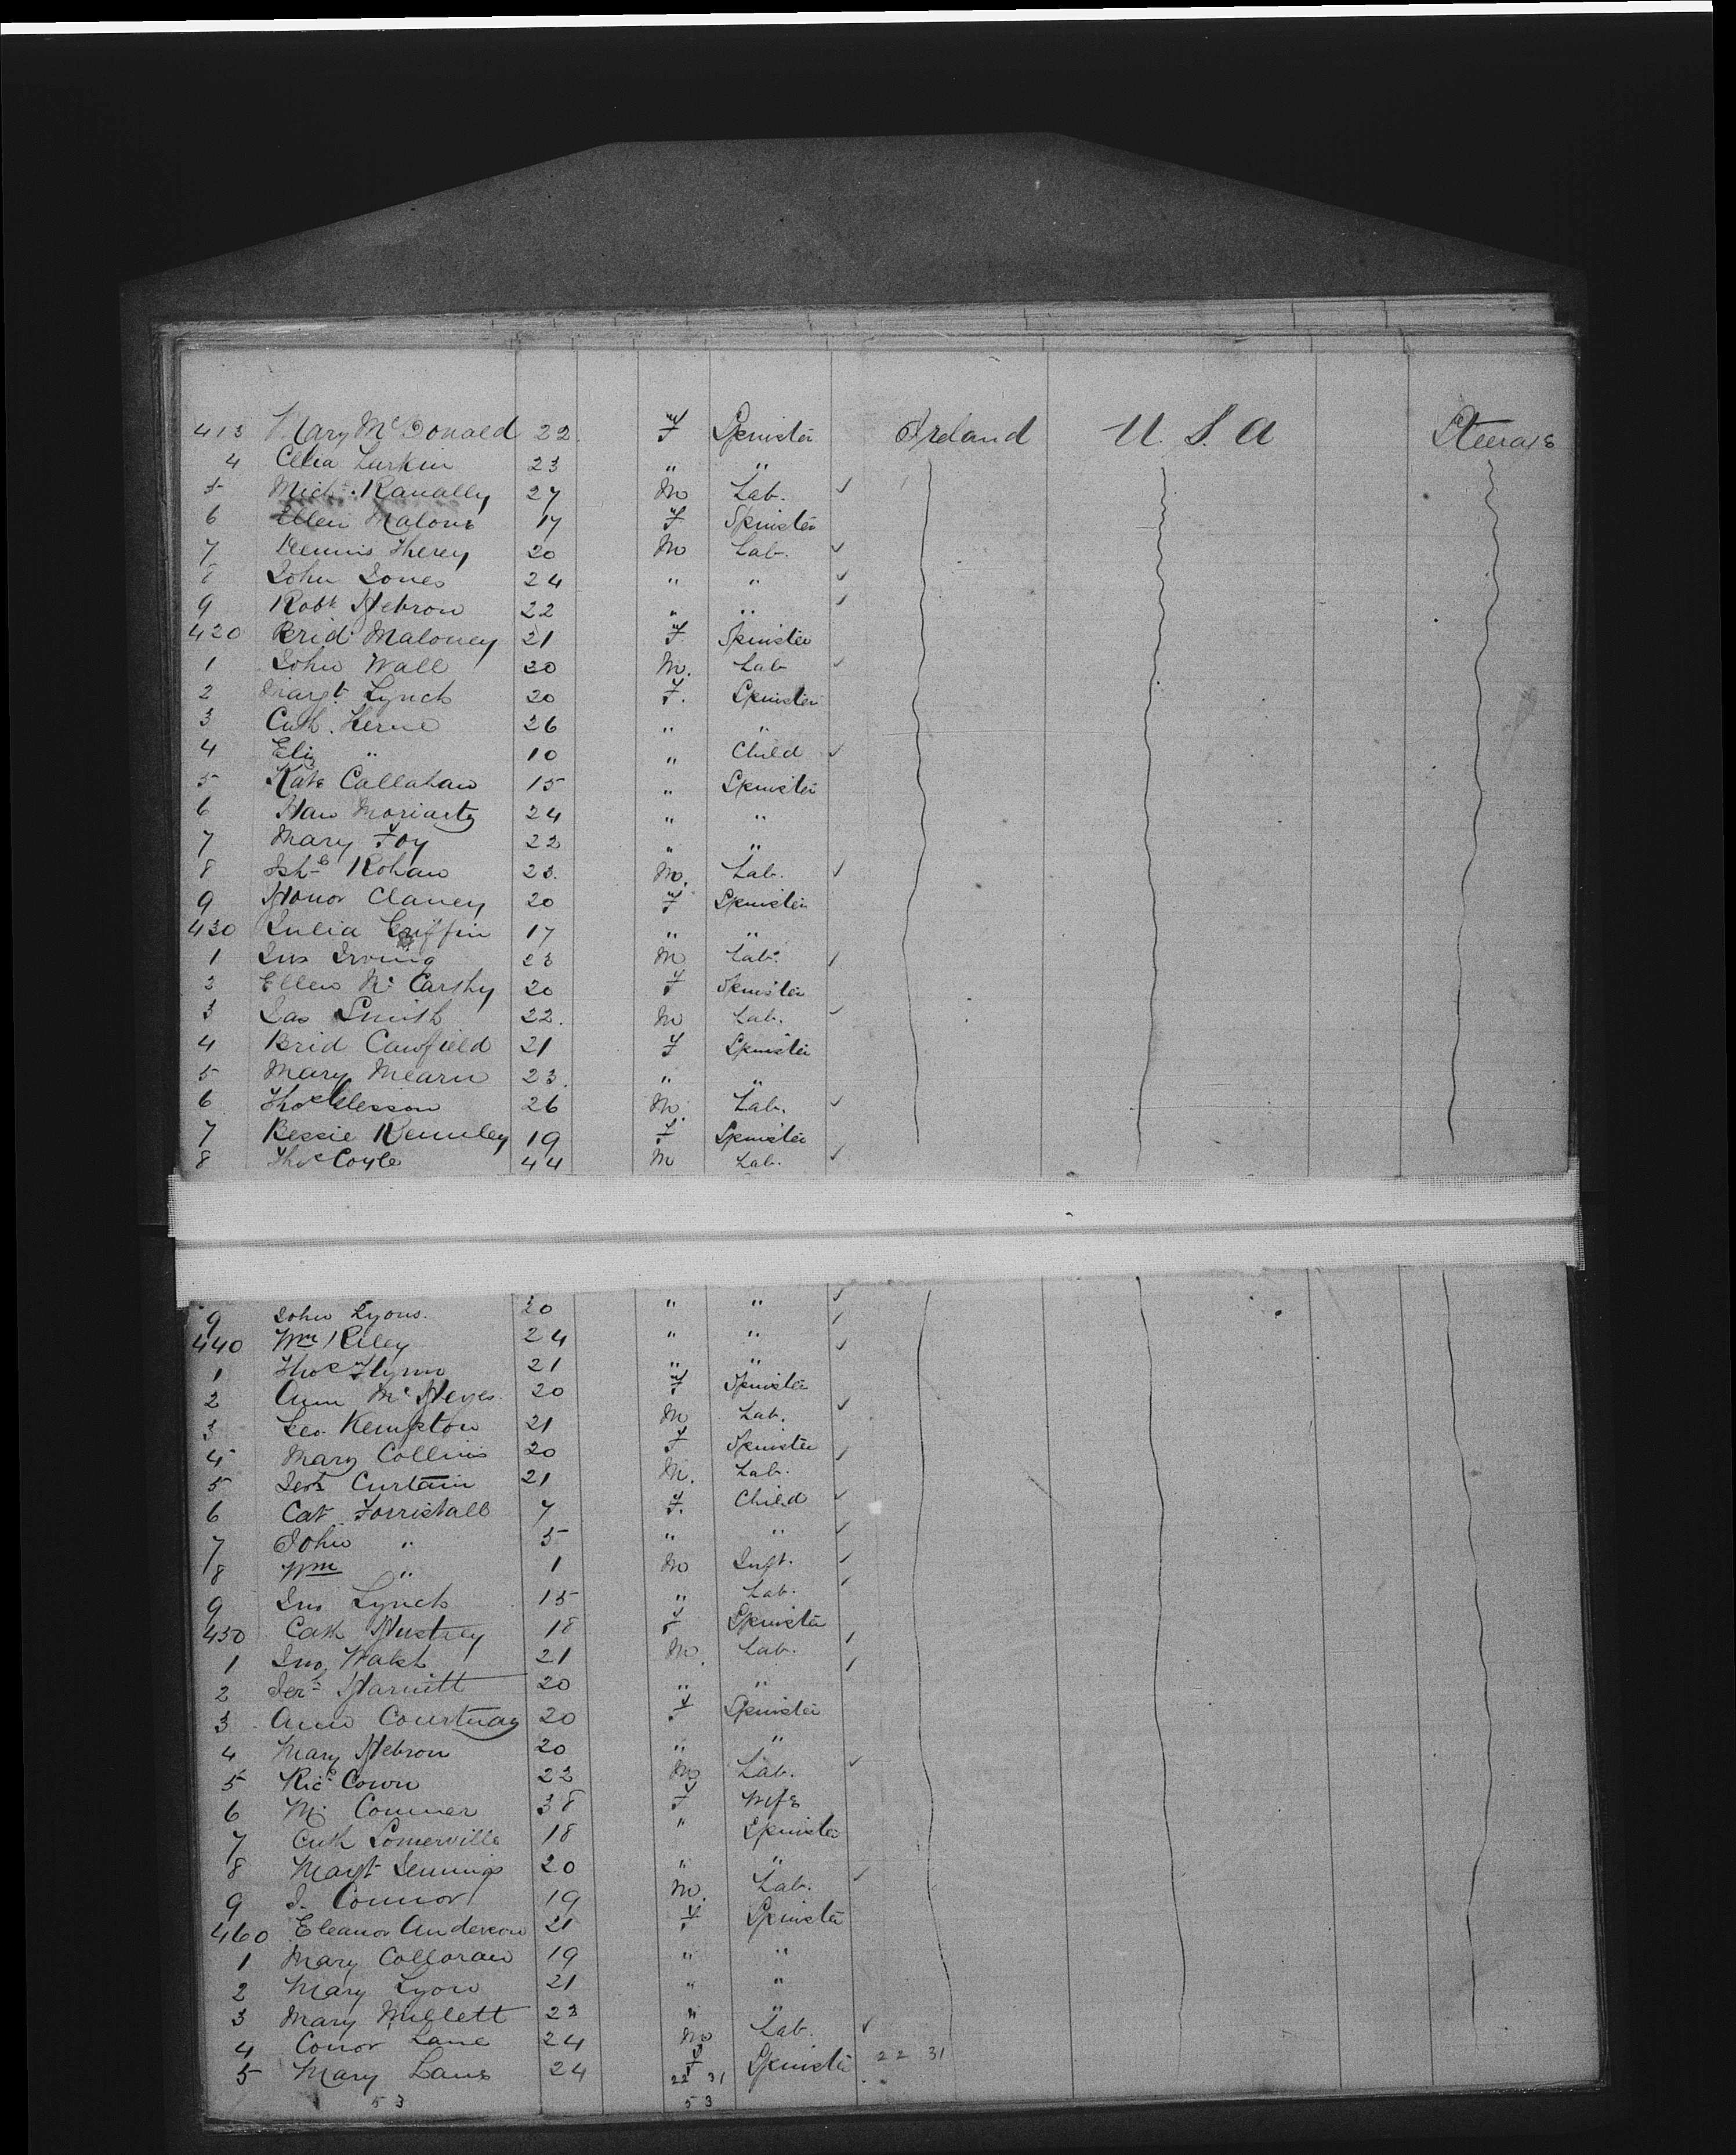 413 Mary McDonald 22 F Spinster Ireland U.S.A Steerage
4 Celia Larkin 23 " "
5 Mich. Ranally 27 M Lab. ✓
6 Ellen Malone 17 F Spinster
7 Dennis Therey 20 M Lab. ✓
8 John Jones 24 " " ✓
9 Robt Hebron 22 " " ✓
420 Brid. Maloney 21 F Spinster
1 John Wall 20 M. Lab ✓
2 Margt Lynch 20 F. Spinster
3 Cath. Kerne 26 " "
4 Eliz " 10 " Child ✓
5 Kate Callahan 15 " Spinster
6 Han Moriarty 24 " "
7 Mary Foy 22 " "
8 Rohan 23. M. Lab. ✓
9 Honor Claney 20 F Spinster
430 Julia Griffin 17 " "
1 Jno Irving 23 M Lab. ✓
2 Ellen Mc Carthy 20 F Spinster
3 Jas Smith 22. M Lab. ✓
4 Brid Cawfield 21 F Spinster
5 Mary Mearn 23. " "
6 Thos Clesson 26 M. Lab. ✓
7 Bessie Kennley 19 F Spinster
8 Thos Coyle 44 M Lab. ✓
9 John Lyons. 20 " " ✓
440 Wm Riley 24 " " ✓
1 Thos Flynn 21 " " ✓
2 Ann Mc Heyes. 20 F Spinster
3 Geo. Kempton 21 M Lab. ✓
4 Mary Collins 20 F Spinster
5 Jerh Curtain 21 M. Lab. ✓
6 Cat. Forristall 7 F. Child ✓
7 John " 5 " " ✓
8 Wm " 1 M Inft. ✓
9 Jno Lynch 15 " Lab. ✓
450 Cath Hustrey 18 F Spinster
1 Jno. Walsh 21 M. Lab. ✓
2 Jerh Harnett 20 " " ✓
3 Ann Courtnay 20 F Spinster
4 Mary Hebron 20 " "
5 Ricd Cown 22 M Lab. ✓
6 M. Conner 38 F Wife
7 Cath Somerville 18 " Spinster
8 Margt Jennings 20 " "
9 J. Connor 19 M. Lab. ✓
460 Eleanor Anderson 21 F Spinster
1 Mary Colloran 19 " "
2 Mary Lyon 21 " "
3 Mary Millett 23 " "
4 Conor Lane 24 M Lab. ✓
5 Mary Lane 24 F Spinster 22 31
22 31
53 53